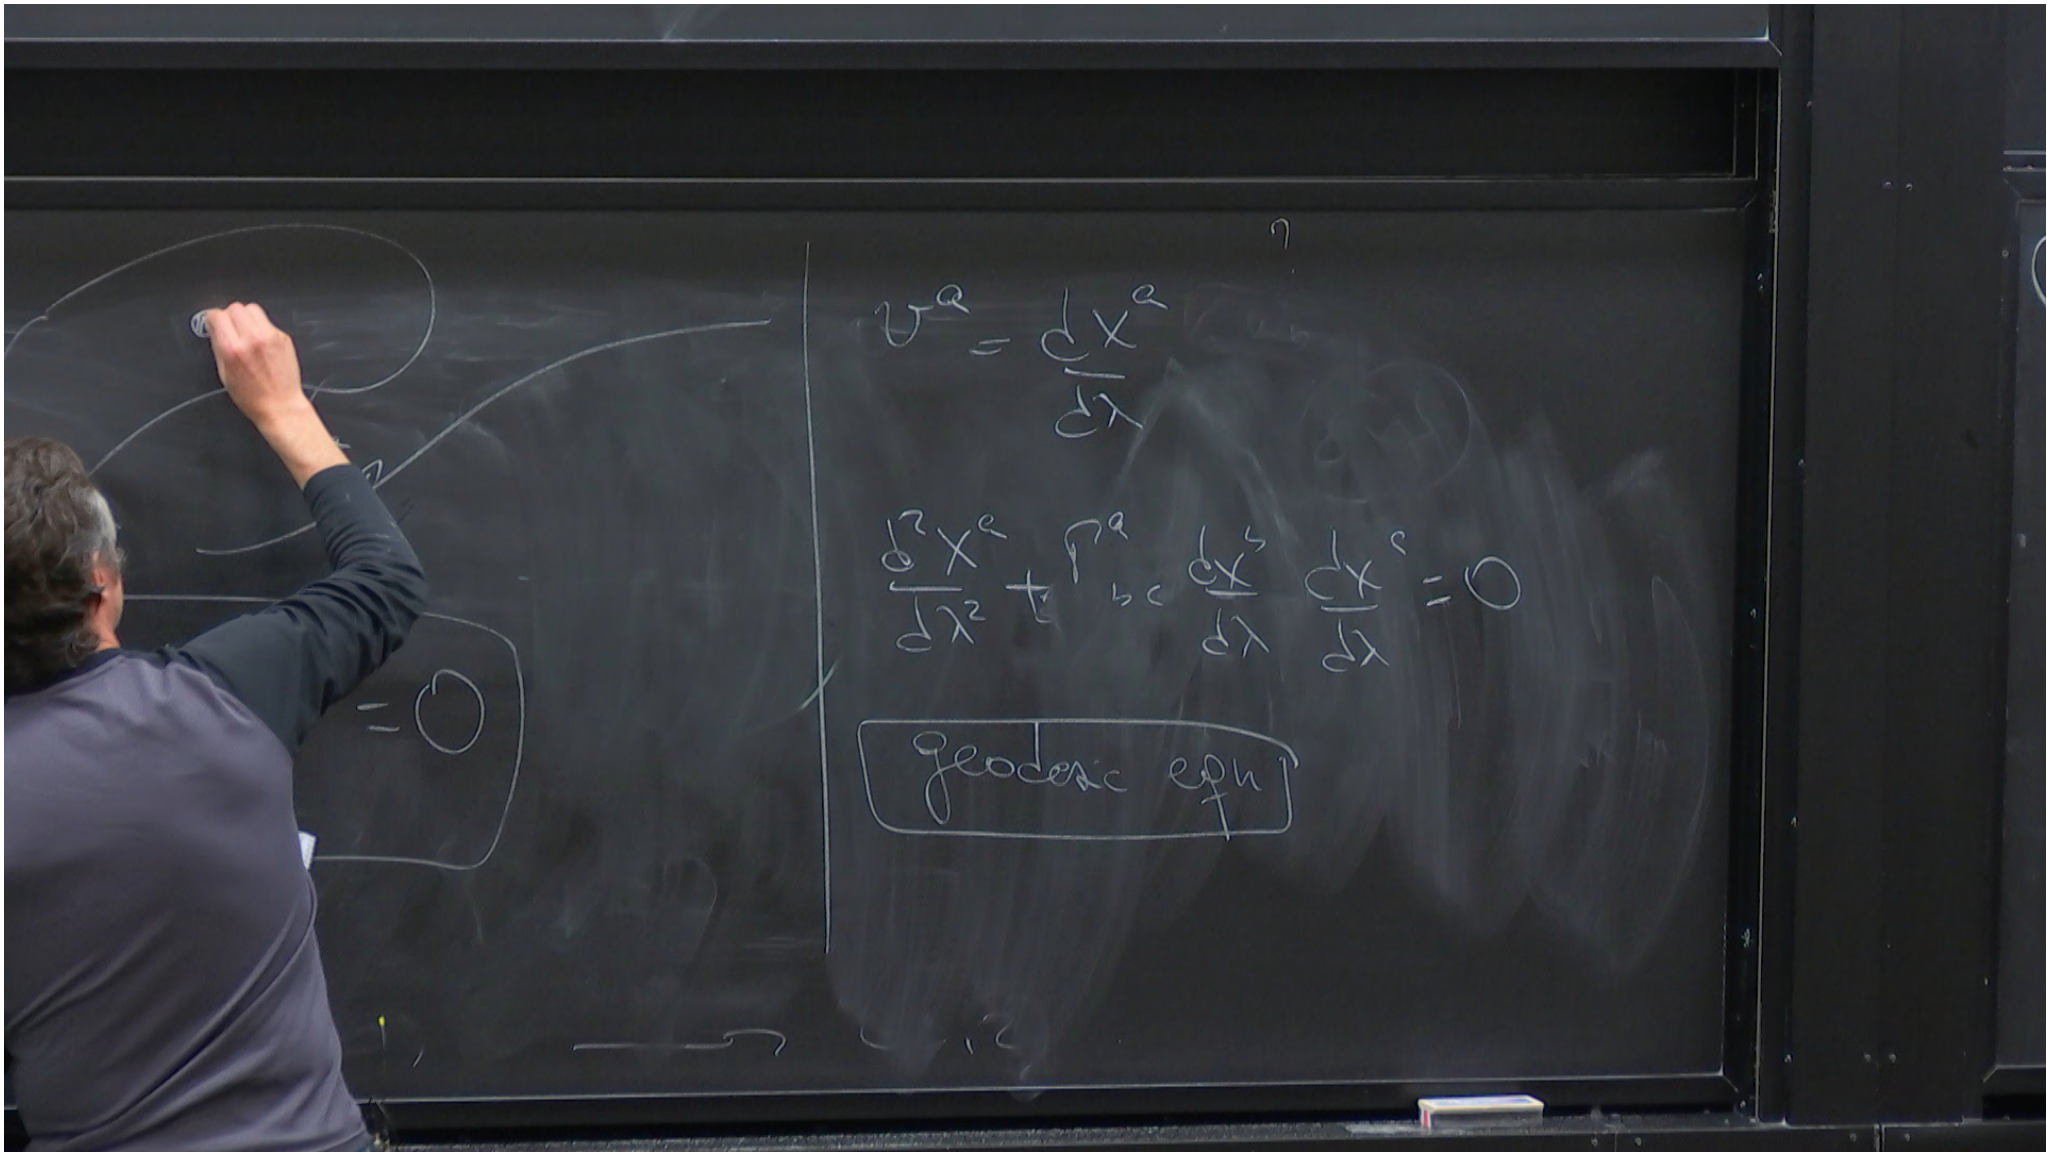 = 0
v^a = dx^a/dλ
d²x^a/dλ² + Γ^a_bc dx^b/dλ dx^c/dλ = 0
geodesic eqn